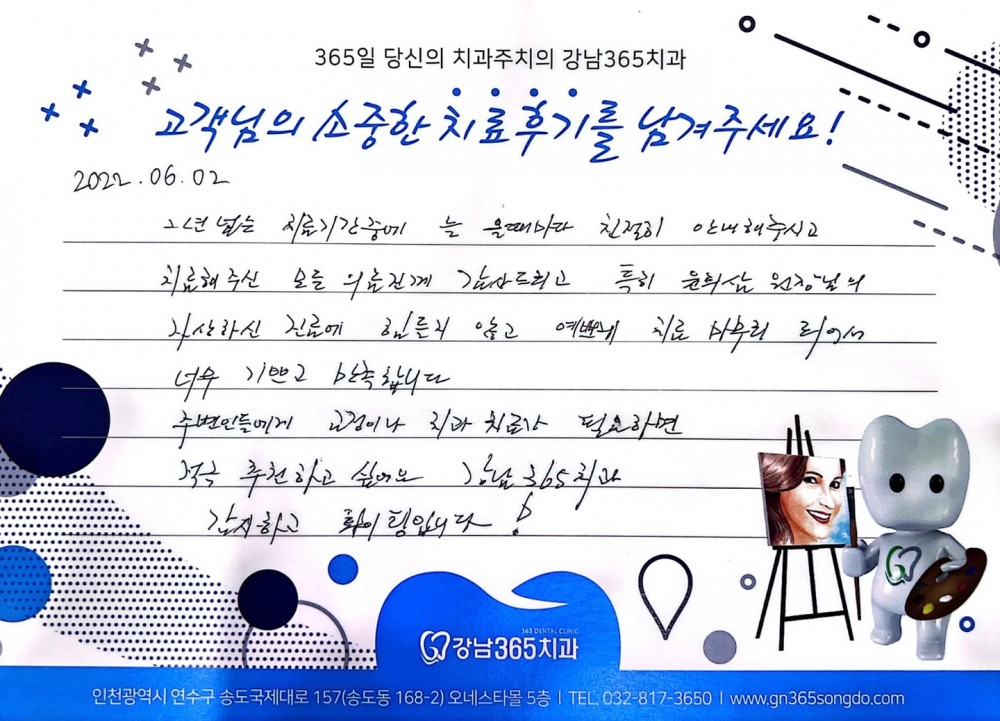 365일 당신의 치과주치의 강남365치과
고객님의 소중한 치료후기를 남겨주세요!
2022.06.02
2년 넘는 치료기간중에 늘 올때마다 친절히 안내해주시고
치료해주신 모든 의료진께 감사드리고 특히 윤희삼 원장님의
자상하신 진료에 힘들지 않고 예쁘게 치료 마무리 되어서
너무 기쁘고 만족합니다
주변인들에게 교정이나 치과 치료가 필요하면
적극 추천하고 싶어요 강남365치과
감사하고 화이팅입니다!
365 DENTAL CLINIC
강남365치과
인천광역시 연수구 송도국제대로 157(송도동 168-2) 오네스타몰 5층 | TEL. 032-817-3650 | www.gn365songdo.com